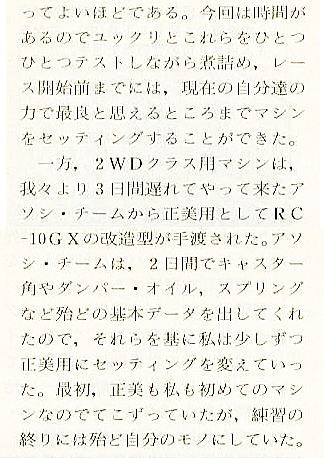 ってよいほどである。今回は時間が
あるのでユックリとこれらをひとつ
ひとつテストしながら煮詰め，レー
ス開始前までには，現在の自分達の
力で最良と思えるところまでマシン
をセッティングすることができた。
一方，2WDクラス用マシンは，
我々より3日間遅れてやって来たア
ソシ・チームから正美用としてRC
-10GXの改造型が手渡された。アソ
シ・チームは，2日間でキャスター
角やダンパー・オイル，スプリング
など殆どの基本データを出してくれ
たので，それらを基に私は少しずつ
正美用にセッティングを変えていっ
た。最初，正美も私も初めてのマシ
ンなのでてこずっていたが，練習の
終りには殆ど自分のモノにしていた。